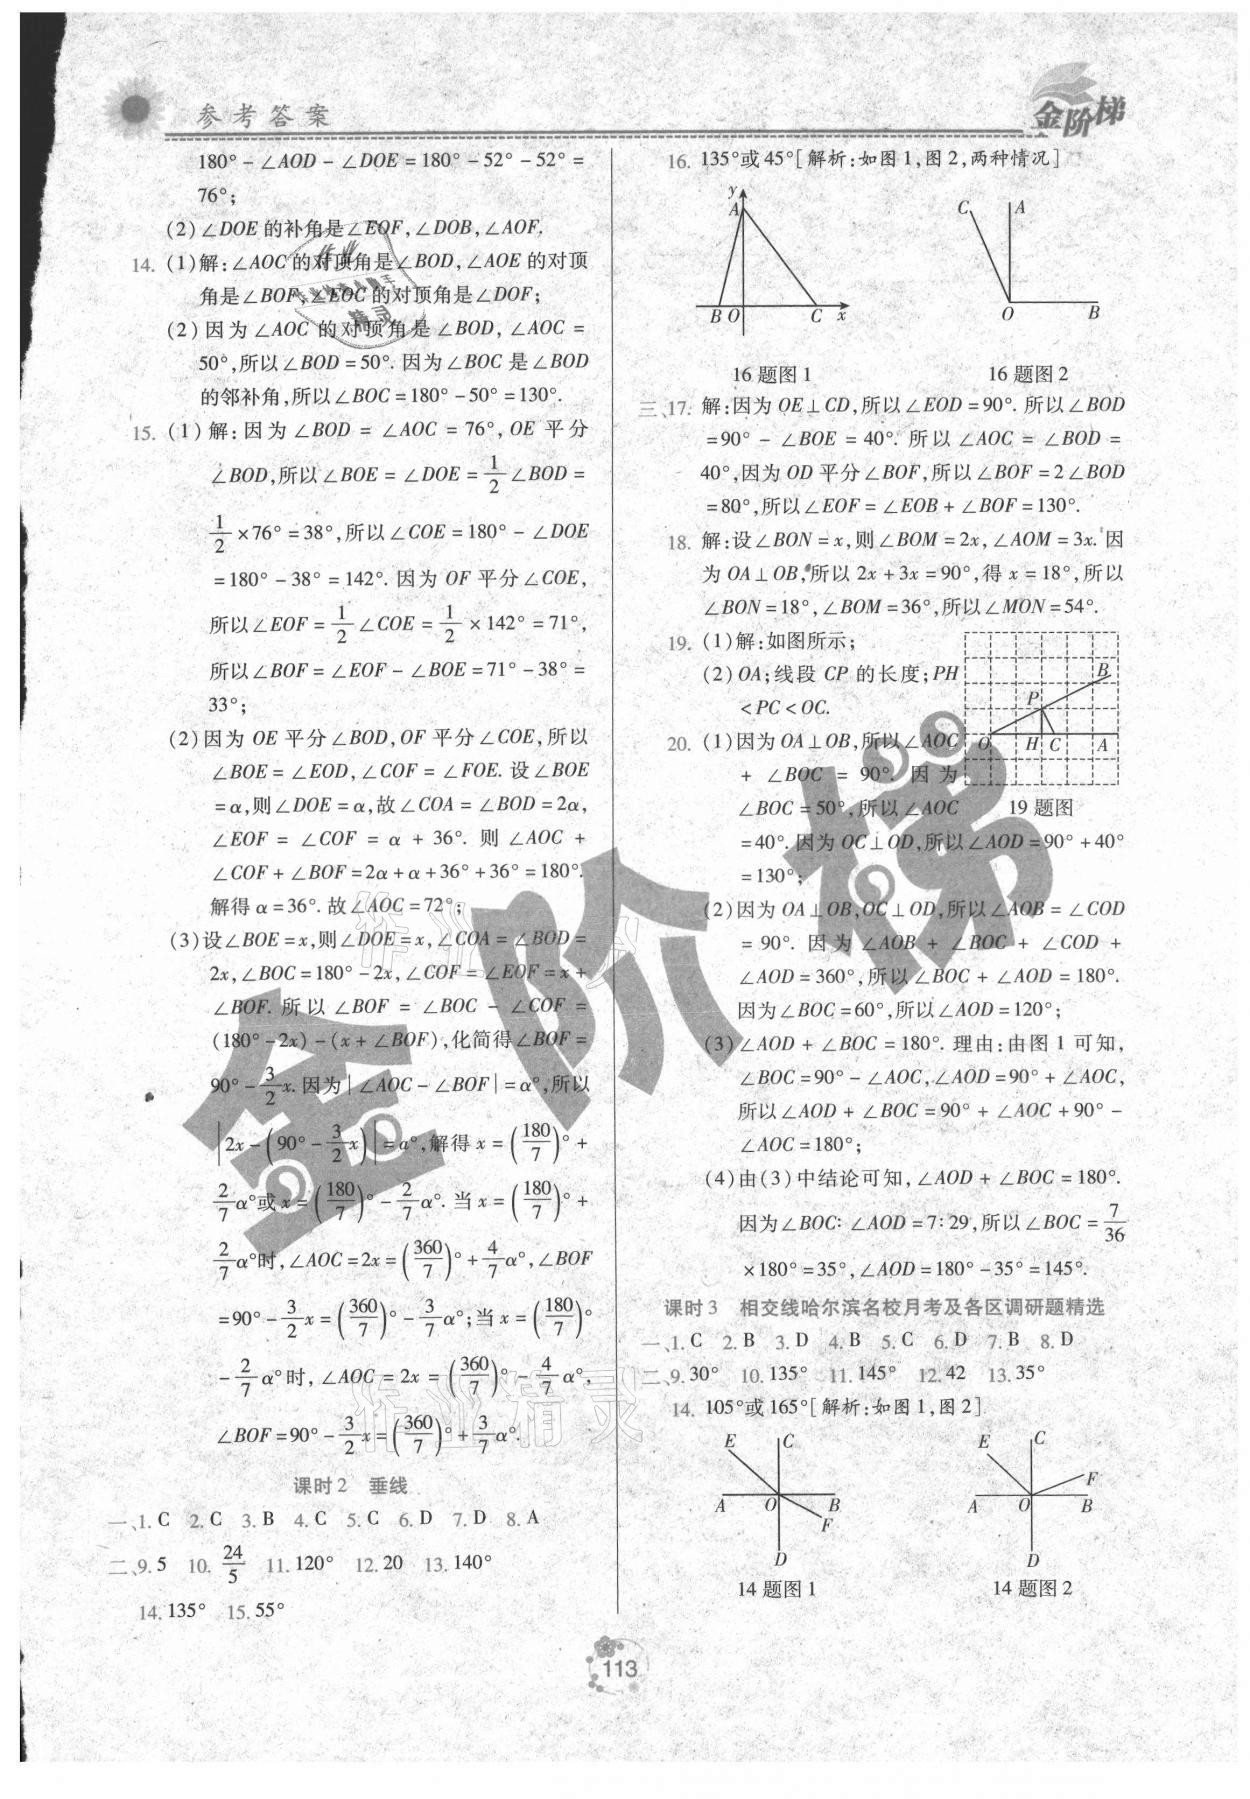 参考答案
金阶梯
180°-∠AOD-∠DOE=180°-52°-52°=
76°;
(2)∠DOE的补角是∠EOF,∠DOB,∠AOF.
14. (1)解:∠AOC的对顶角是∠BOD,∠AOE的对顶
角是∠BOF,∠EOC的对顶角是∠DOF;
(2)因为∠AOC的对顶角是∠BOD,∠AOC=
50°,所以∠BOD=50°.因为∠BOC是∠BOD
的邻补角,所以∠BOC=180°-50°=130°.
15. (1)解:因为∠BOD=∠AOC=76°,OE平分
∠BOD,所以∠BOE=∠DOE=1/2∠BOD=
1/2×76°=38°,所以∠COE=180°-∠DOE
=180°-38°=142°.因为OF平分∠COE,
所以∠EOF=1/2∠COE=1/2×142°=71°,
所以∠BOF=∠EOF-∠BOE=71°-38°=
33°;
(2)因为OE平分∠BOD,OF平分∠COE,所以
∠BOE=∠EOD,∠COF=∠FOE.设∠BOE
=α,则∠DOE=α,故∠COA=∠BOD=2α,
∠EOF=∠COF=α+36°.则∠AOC+
∠COF+∠BOF=2α+α+36°+36°=180°.
解得α=36°.故∠AOC=72°;
(3)设∠BOE=x,则∠DOE=x,∠COA=∠BOD=
2x,∠BOC=180°-2x,∠COF=∠EOF=x+
∠BOF.所以∠BOF=∠BOC-∠COF=
(180°-2x)-(x+∠BOF),化简得∠BOF=
90°-3/2x.因为|∠AOC-∠BOF|=α°,所以
|2x-(90°-3/2x)|=a°,解得x=(180/7)°+
2/7α°或x=(180/7)°-2/7α°.当x=(180/7)°+
2/7α°时,∠AOC=2x=(360/7)°+4/7α°,∠BOF
=90°-3/2x=(360/7)°-3/7α°;当x=(180/7)°
-2/7α°时,∠AOC=2x=(360/7)°-4/7α°,
∠BOF=90°-3/2x=(360/7)°+3/7α°.
课时2 垂线
一、1.C 2.C 3.B 4.C 5.C 6.D 7.D 8.A
二、9.5 10.24/5 11.120° 12.20 13.140°
14.135° 15.55°
16. 135°或45°[解析:如图1,图2,两种情况]
y A B O C x
C A O B
16题图1 16题图2
三、17. 解:因为OE⊥CD,所以∠EOD=90°.所以∠BOD
=90°-∠BOE=40°.所以∠AOC=∠BOD=
40°,因为OD平分∠BOF,所以∠BOF=2∠BOD
=80°,所以∠EOF=∠EOB+∠BOF=130°.
18. 解:设∠BON=x,则∠BOM=2x,∠AOM=3x.因
为OA⊥OB,所以2x+3x=90°,得x=18°,所以
∠BON=18°,∠BOM=36°,所以∠MON=54°.
19. (1)解:如图所示;
(2)OA;线段CP的长度;PH
<PC<OC.
B P O H C A
19题图
20. (1)因为OA⊥OB,所以∠AOC
+∠BOC=90°.因为
∠BOC=50°,所以∠AOC
=40°.因为OC⊥OD,所以∠AOD=90°+40°
=130°;
(2)因为OA⊥OB,OC⊥OD,所以∠AOB=∠COD
=90°.因为∠AOB+∠BOC+∠COD+
∠AOD=360°,所以∠BOC+∠AOD=180°.
因为∠BOC=60°,所以∠AOD=120°;
(3)∠AOD+∠BOC=180°.理由:由图1可知,
∠BOC=90°-∠AOC,∠AOD=90°+∠AOC,
所以∠AOD+∠BOC=90°+∠AOC+90°-
∠AOC=180°;
(4)由(3)中结论可知,∠AOD+∠BOC=180°.
因为∠BOC:∠AOD=7:29,所以∠BOC=7/36
×180°=35°,∠AOD=180°-35°=145°.
课时3 相交线哈尔滨名校月考及各区调研题精选
一、1.C 2.B 3.D 4.B 5.C 6.D 7.B 8.D
二、9.30° 10.135° 11.145° 12.42 13.35°
14. 105°或165°[解析:如图1,图2]
E C A O B F D
E C F A O B D
14题图1 14题图2
113
金阶梯
作业精灵